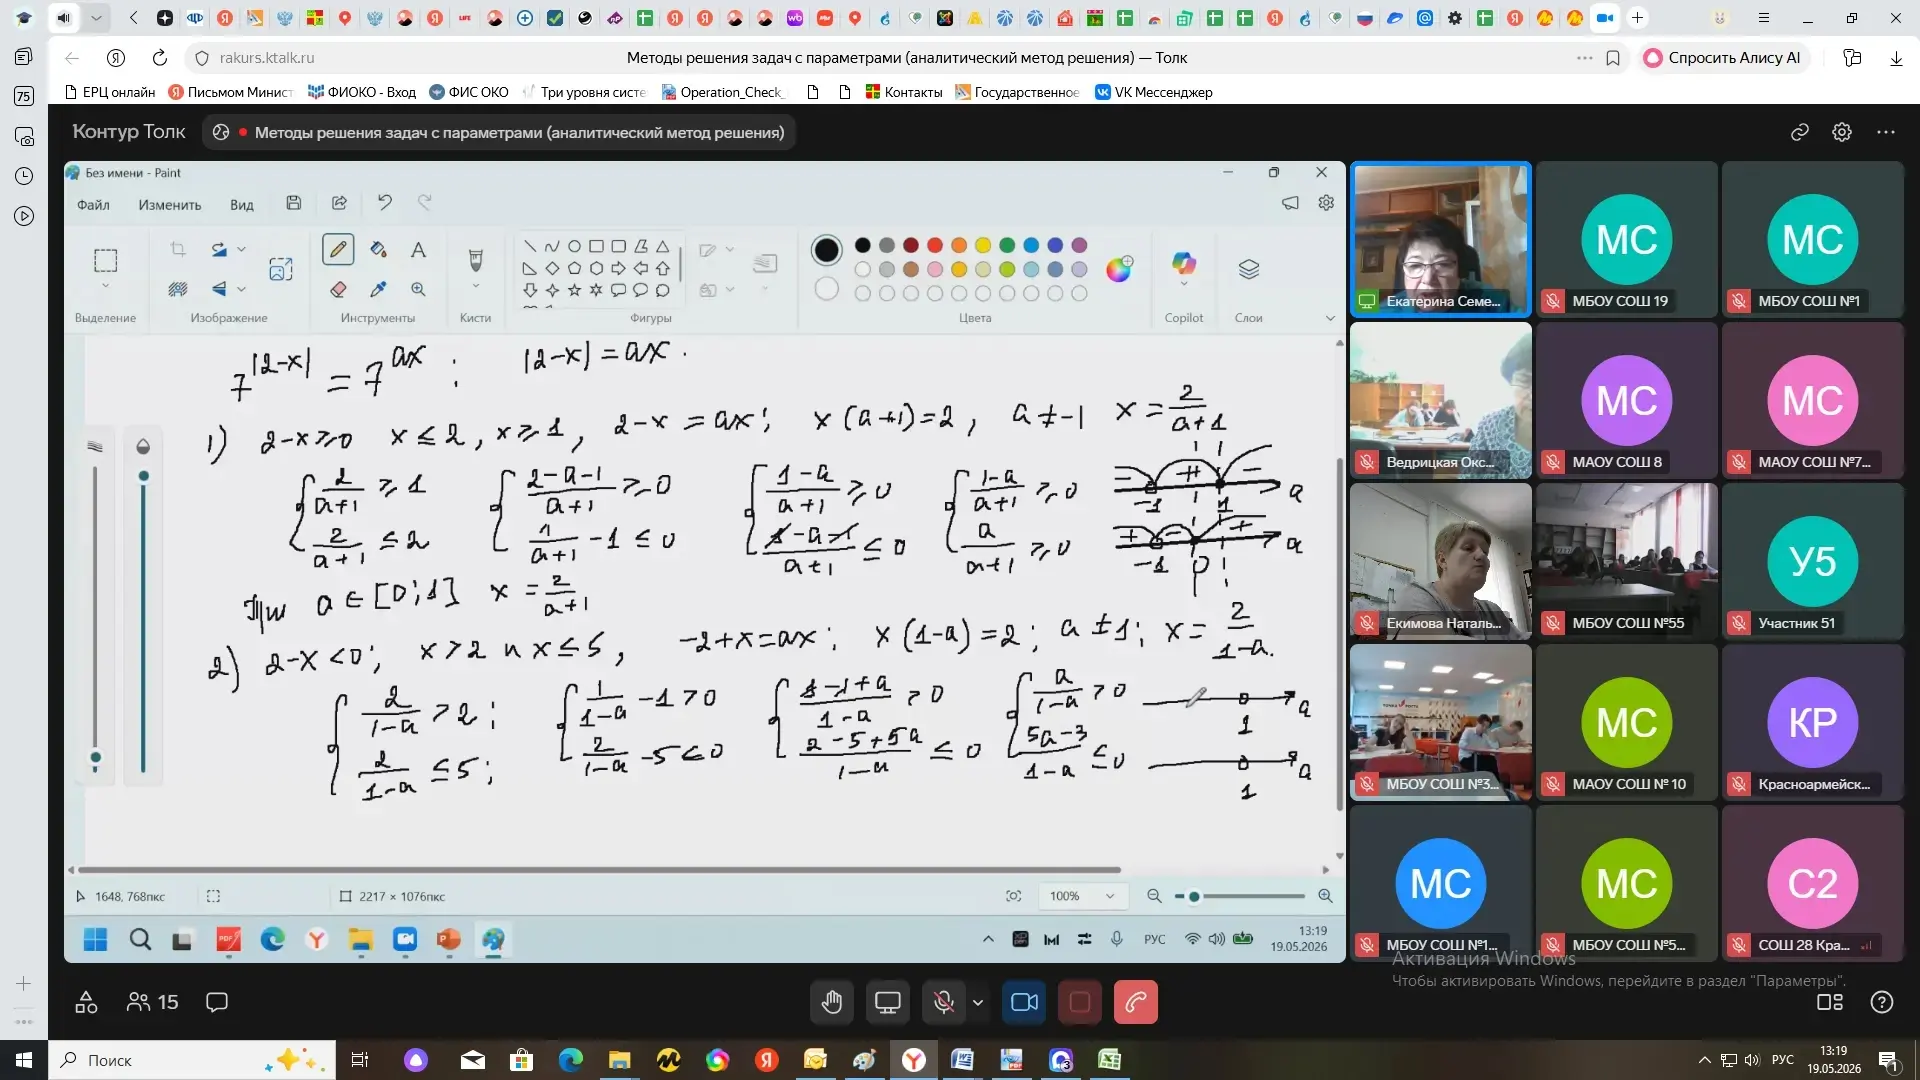 rakurs.ktalk.ru
Методы решения задач с параметрами (аналитический метод решения) — Толк
Спросить Алису AI
75
ЕРЦ онлайн
Письмом Минист
ФИОКО - Вход
ФИС ОКО
Три уровня систе
Operation_Check_
Контакты
Государственное
VK Мессенджер
Контур Толк
Методы решения задач с параметрами (аналитический метод решения)
Без имени - Paint
Файл Изменить Вид
Выделение Изображение Инструменты Кисти Фигуры Цвета Copilot Слои
7^|2-x| = 7^ax ; |2-x| = ax.
1) 2-x ≥ 0 x ≤ 2, x ≥ 1, 2-x = ax; x(a+1) = 2, a ≠ -1 x = 2/(a+1)
{ 2/(a+1) ≥ 1 { (2-a-1)/(a+1) ≥ 0 { (1-a)/(a+1) ≥ 0 { (1-a)/(a+1) ≥ 0 - + - -1 1 a
2/(a+1) ≤ 2 1/(a+1) -1 ≤ 0 (1-a-1)/(a+1) ≤ 0 a/(a+1) ≥ 0 + - + -1 0 a
При a ∈ [0;1] x = 2/(a+1)
2) 2-x < 0; x > 2 и x ≤ 5, -2+x = ax; x(1-a) = 2; a ≠ 1; x = 2/(1-a).
{ 2/(1-a) > 2; { 1/(1-a) -1 > 0 { (1-1+a)/(1-a) > 0 { a/(1-a) > 0 1 a
2/(1-a) ≤ 5; 2/(1-a) -5 ≤ 0 (2-5+5a)/(1-a) ≤ 0 (5a-3)/(1-a) ≤ 0 1 a
1648, 768пкс
2217 × 1076пкс
100%
РУС
13:19
19.05.2026
Екатерина Семе...
МС
МБОУ СОШ 19
МС
МБОУ СОШ №1
Ведрицкая Окс...
МС
МАОУ СОШ 8
МС
МАОУ СОШ №7...
Екимова Наталь...
МБОУ СОШ №55
У5
Участник 51
МБОУ СОШ №3...
МС
МАОУ СОШ № 10
КР
Красноармейск...
МС
МБОУ СОШ №1...
МС
МБОУ СОШ №5...
С2
СОШ 28 Кра...
Активация Windows
Чтобы активировать Windows, перейдите в раздел "Параметры".
15
Поиск
РУС
13:19
19.05.2026